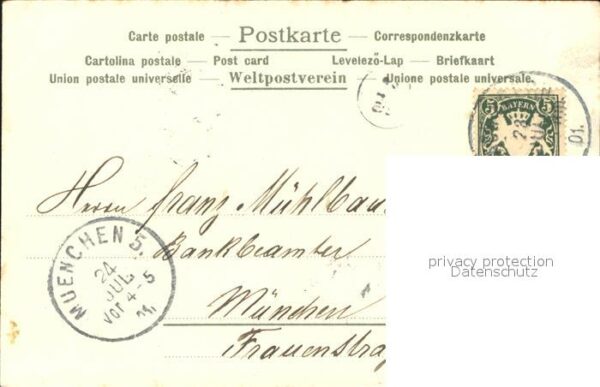 Carte postale — Postkarte — Correspondenzkarte
Cartolina postale — Post card Levelező-Lap — Briefkaart
Union postale universelle — Weltpostverein — Unione postale universale.
5 BAYERN 5
23
JUL
01.
Herrn Franz Mühlbau
Bankbeamter
München
Frauenstra
MUENCHEN 5.
24
JUL
Vor 4-5
privacy protection
Datenschutz